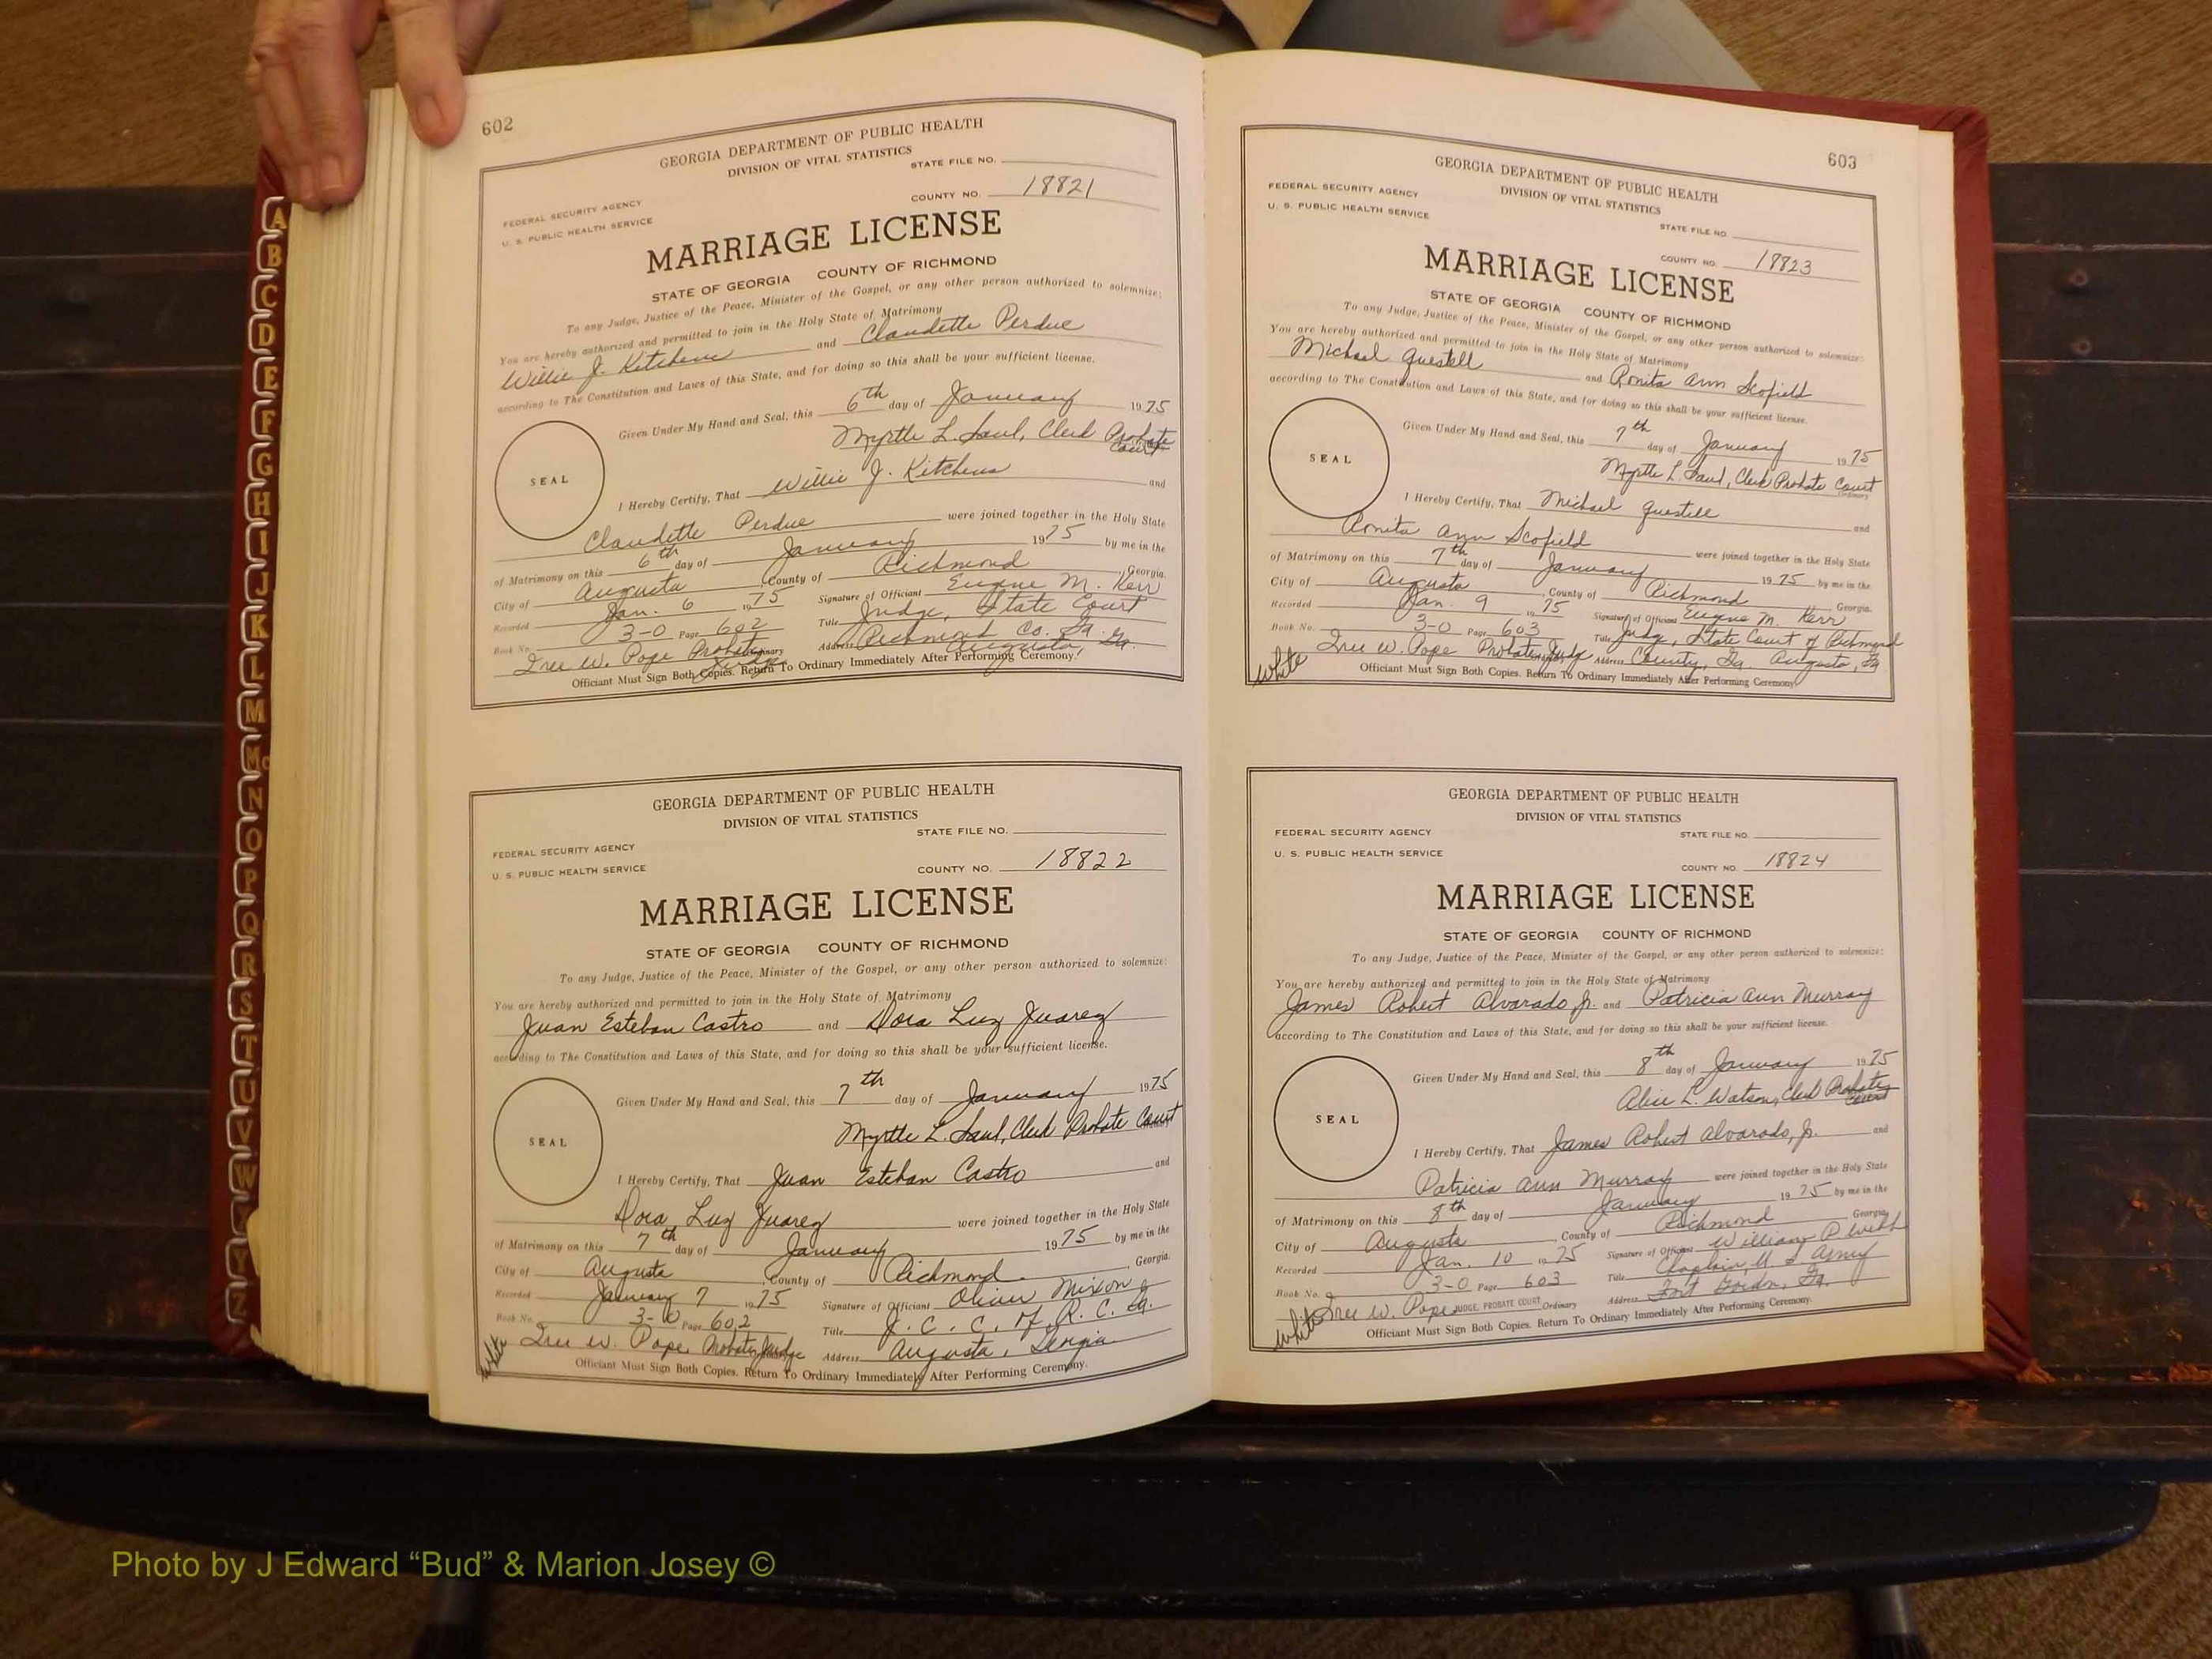 A
B
C
D
E
F
G
H
I
J
K
L
M
Mc
N
O
P
Q
R
S
T
U
V
W
Y
Z
602
GEORGIA DEPARTMENT OF PUBLIC HEALTH
DIVISION OF VITAL STATISTICS
STATE FILE NO.
FEDERAL SECURITY AGENCY
COUNTY NO. 18821
U. S. PUBLIC HEALTH SERVICE
MARRIAGE LICENSE
STATE OF GEORGIA COUNTY OF RICHMOND
To any Judge, Justice of the Peace, Minister of the Gospel, or any other person authorized to solemnize:
You are hereby authorized and permitted to join in the Holy State of Matrimony
Willie J. Kitchens and Claudette Perdue
according to The Constitution and Laws of this State, and for doing so this shall be your sufficient license.
Given Under My Hand and Seal, this 6th day of January 1975
Myrtle L. Saul, Clerk Probate Court
SEAL
I Hereby Certify, That Willie J. Kitchens and
Claudette Perdue were joined together in the Holy State
of Matrimony on this 6th day of January 1975 by me in the
City of Augusta, County of Richmond, Georgia.
Recorded Jan. 6 1975 Signature of Officiant Eugene M. Kerr
Book No. 3-O Page 602 Title Judge, State Court
W. Pope Probate Judge Address Richmond Co. Ga. Augusta, Ga.
Officiant Must Sign Both Copies. Return To Ordinary Immediately After Performing Ceremony.
GEORGIA DEPARTMENT OF PUBLIC HEALTH
DIVISION OF VITAL STATISTICS
STATE FILE NO.
FEDERAL SECURITY AGENCY
COUNTY NO. 18822
U. S. PUBLIC HEALTH SERVICE
MARRIAGE LICENSE
STATE OF GEORGIA COUNTY OF RICHMOND
To any Judge, Justice of the Peace, Minister of the Gospel, or any other person authorized to solemnize:
You are hereby authorized and permitted to join in the Holy State of Matrimony
Juan Esteban Castro and Dora Luz Juarez
according to The Constitution and Laws of this State, and for doing so this shall be your sufficient license.
Given Under My Hand and Seal, this 7th day of January 1975
Myrtle L. Saul, Clerk Probate Court
SEAL
I Hereby Certify, That Juan Esteban Castro and
Dora Luz Juarez were joined together in the Holy State
of Matrimony on this 7th day of January 1975 by me in the
City of Augusta, County of Richmond, Georgia.
Recorded January 7 1975 Signature of Officiant Oliver Mixon
Book No. 3-O Page 602 Title J. C. C. of R. C. Ga.
white W. Pope Probate Judge Address Augusta, Georgia
Officiant Must Sign Both Copies. Return To Ordinary Immediately After Performing Ceremony.
603
GEORGIA DEPARTMENT OF PUBLIC HEALTH
FEDERAL SECURITY AGENCY
DIVISION OF VITAL STATISTICS
U. S. PUBLIC HEALTH SERVICE
STATE FILE NO.
COUNTY NO. 18823
MARRIAGE LICENSE
STATE OF GEORGIA COUNTY OF RICHMOND
To any Judge, Justice of the Peace, Minister of the Gospel, or any other person authorized to solemnize:
You are hereby authorized and permitted to join in the Holy State of Matrimony
Michael Questell and Ronita Ann Scofield
according to The Constitution and Laws of this State, and for doing so this shall be your sufficient license.
Given Under My Hand and Seal, this 7th day of January 1975
Myrtle L. Saul, Clerk Probate Court
SEAL
I Hereby Certify, That Michael Questell and
Ronita Ann Scofield were joined together in the Holy State
of Matrimony on this 7th day of January 1975 by me in the
City of Augusta, County of Richmond, Georgia.
Recorded Jan. 9 1975 Signature of Officiant Eugene M. Kerr
Book No. 3-O Page 603 Title Judge, State Court of Richmond
white W. Pope Probate Judge Address County, Ga. Augusta, Ga
Officiant Must Sign Both Copies. Return To Ordinary Immediately After Performing Ceremony.
GEORGIA DEPARTMENT OF PUBLIC HEALTH
DIVISION OF VITAL STATISTICS
FEDERAL SECURITY AGENCY STATE FILE NO.
U. S. PUBLIC HEALTH SERVICE
COUNTY NO. 18824
MARRIAGE LICENSE
STATE OF GEORGIA COUNTY OF RICHMOND
To any Judge, Justice of the Peace, Minister of the Gospel, or any other person authorized to solemnize:
You are hereby authorized and permitted to join in the Holy State of Matrimony
James Robert Alvarado Jr. and Patricia Ann Murray
according to The Constitution and Laws of this State, and for doing so this shall be your sufficient license.
Given Under My Hand and Seal, this 8th day of January 1975
Alice L. Watson, Clerk Probate Court
SEAL
I Hereby Certify, That James Robert Alvarado, Jr. and
Patricia Ann Murray were joined together in the Holy State
of Matrimony on this 8th day of January 1975 by me in the
City of Augusta, County of Richmond Georgia
Recorded Jan. 10 1975 Signature of Officiant William P Webb
Book No. 3-O Page 603 Title Chaplain U S Army
white W. Pope JUDGE, PROBATE COURT Ordinary Address Fort Gordon, Ga.
Officiant Must Sign Both Copies. Return To Ordinary Immediately After Performing Ceremony.
Photo by J Edward “Bud” & Marion Josey ©